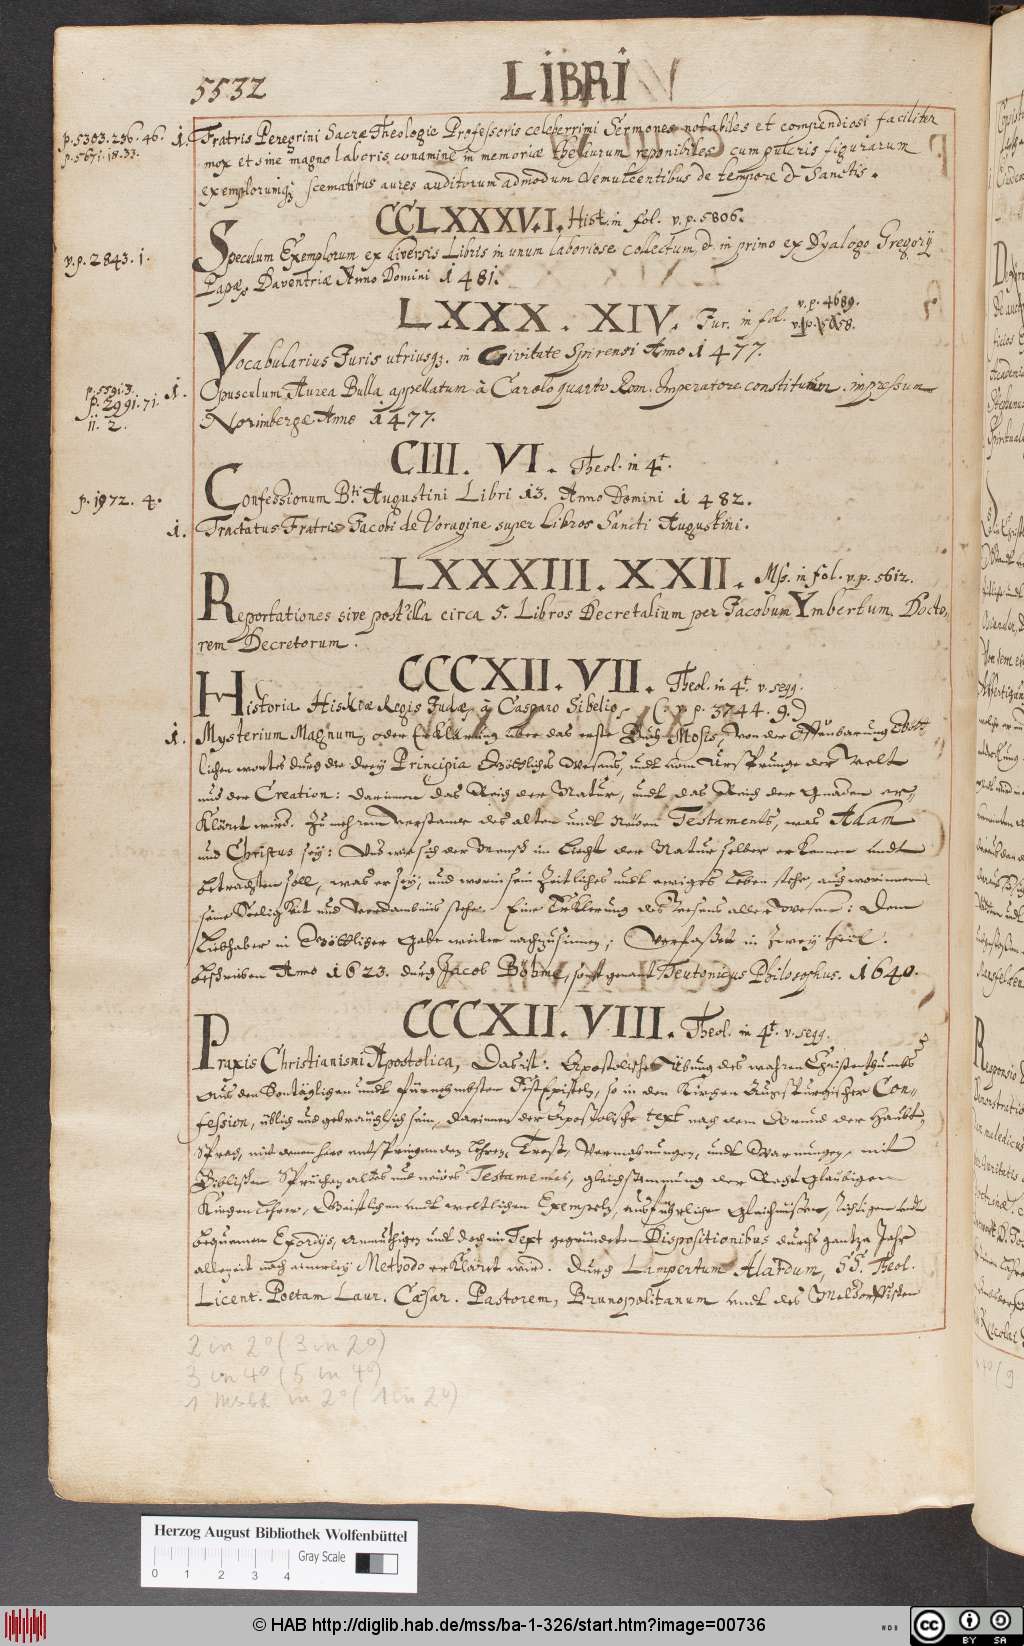 5532
LIBRI
p. 5303. 236. 46.
p. 5671. 18. 33.
1. Fratris Peregrini Sacræ Theologie Professoris celeberrimi Sermones notabiles et compendiosi faciliter
mox et sine magno laboris conamine in memoriæ thesaurum reponibiles cum pulcris figurarum
exemplorumq; scematibus aures auditorum admodum demulcentibus de tempore & Sanctis.
CCLXXXVI. 1. Hist. in fol. v. p. 5806.
v. p. 2843. 1.
Speculum Exemplorum ex diversis Libris in unum laboriose collectum, & in primo ex Dyalogo Gregorij
Papæ, Daventriæ Anno Domini 1481.
LXXX. XIV. Jur. in fol. v. p. 4689.
v. p. 5658.
Vocabularius Juris utriusq; in Civitate Spirensi Anno 1477.
p. 5591. 3.
p. 2991. 71.
11. 2.
1. Opusculum Aurea Bulla appellatum à Carolo quarto Rom. Imperatore constitutum. impressum
Norimbergæ Anno 1477.
CIII. VI. Theol. in 4t.
p. 1972. 4.
Confessionum Bti Augustini Libri 13. Anno Domini 1482.
1. Tractatus Fratris Jacobi de Voragine super Libros Sancti Augustini.
LXXXIII. XXII. Mss. in fol. v. p. 5612.
Reportationes sive postilla circa 5. Libros Decretalium per Jacobum Ymbertum Docto,
rem Decretorum.
CCCXII. VII. Theol. in 4t. v. seqq.
Historia Hiskiæ Regis Judæ, à Casparo Sibelio, (v. p. 3744. 9.)
1. Mysterium Magnum, oder Erklärung über das erste Buch Mosis, von der Offenbarung Gött,
lichen worts durch die drey Principia Göttliches Wesens, undt vom Ursprunge der Welt
und der Creation: darinnen das Reich der Natur, undt das Reich der Gnaden er,
Kläret wird. Zu mehrem verstande des alten undt Neüen Testaments, was Adam
und Christus sey: Und wie sich der Mensch im Liecht der Natur selber erkennen undt
betrachten soll, was er sey, und worin sein Zeitliches undt ewiges Leben stehe, auch worinnen
seine Seeligkeit und verdamnüs stehe. Eine Erklerung des Wesens aller wesen: Dem
Liebhaber in Göttlicher Gabe weiter nachzusinnen, Verfasset in Zwey theil.
Beschrieben Anno 1623. durch Jacob Böhme, sonst genant Teutonicus Philosophus. 1640.
CCCXII. VIII. Theol. in 4t. v. seqq.
Praxis Christianismi Apostolica, Das ist: Apostolische Übung des wahren Christenthumbs
Aus den Sontäglichen undt fürnehmbsten Fest Episteln, so in den Kirchen Augspurgischer Con,
fession, üblich und gebräuchlich sein, darinnen der Apostolische text nach dem Grund der Haubt,
Sprach, mit denen hiero entspringenden Lehren, Trost, Vermahnungen, undt Warnungen, mit
Biblischen Sprüchen altes und neües Testamentes, gleichstimmung der Rechtgläubigen
Kirchen Lehrer, Geistlichen undt weltlichen Exempeln, auszführlichen gleichnüssen, richtigen undt
bequemen Exordijs, anmuthigen undt doch im Text gegründeten Dispositionibus durchs gantze Jahr
allezeit nach einerley Methodo erkläret wird. Durch Lampertum Alardum, SS. Theol.
Licent. Poetam Laur. Cæsar. Pastorem, Brunopolitanum undt des Meldorffischen
2 in 2° (3 in 2°)
3 in 4° (5 in 4°)
1 Msbd in 2° (1 in 2°)
Herzog August Bibliothek Wolfenbüttel
Gray Scale
0 1 2 3 4
© HAB http://diglib.hab.de/mss/ba-1-326/start.htm?image=00736
cc BY SA